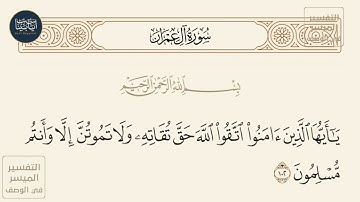 التفسير
الميسر
سُورَةُ آلِ عِمْرَانَ
بِسْمِ اللَّهِ الرَّحْمَٰنِ الرَّحِيمِ
يَٰٓأَيُّهَا ٱلَّذِينَ ءَامَنُوا۟ ٱتَّقُوا۟ ٱللَّهَ حَقَّ تُقَاتِهِۦ وَلَا تَمُوتُنَّ إِلَّا وَأَنتُم
مُّسْلِمُونَ ١٠٢
التفسير
الميسر
في الوصف